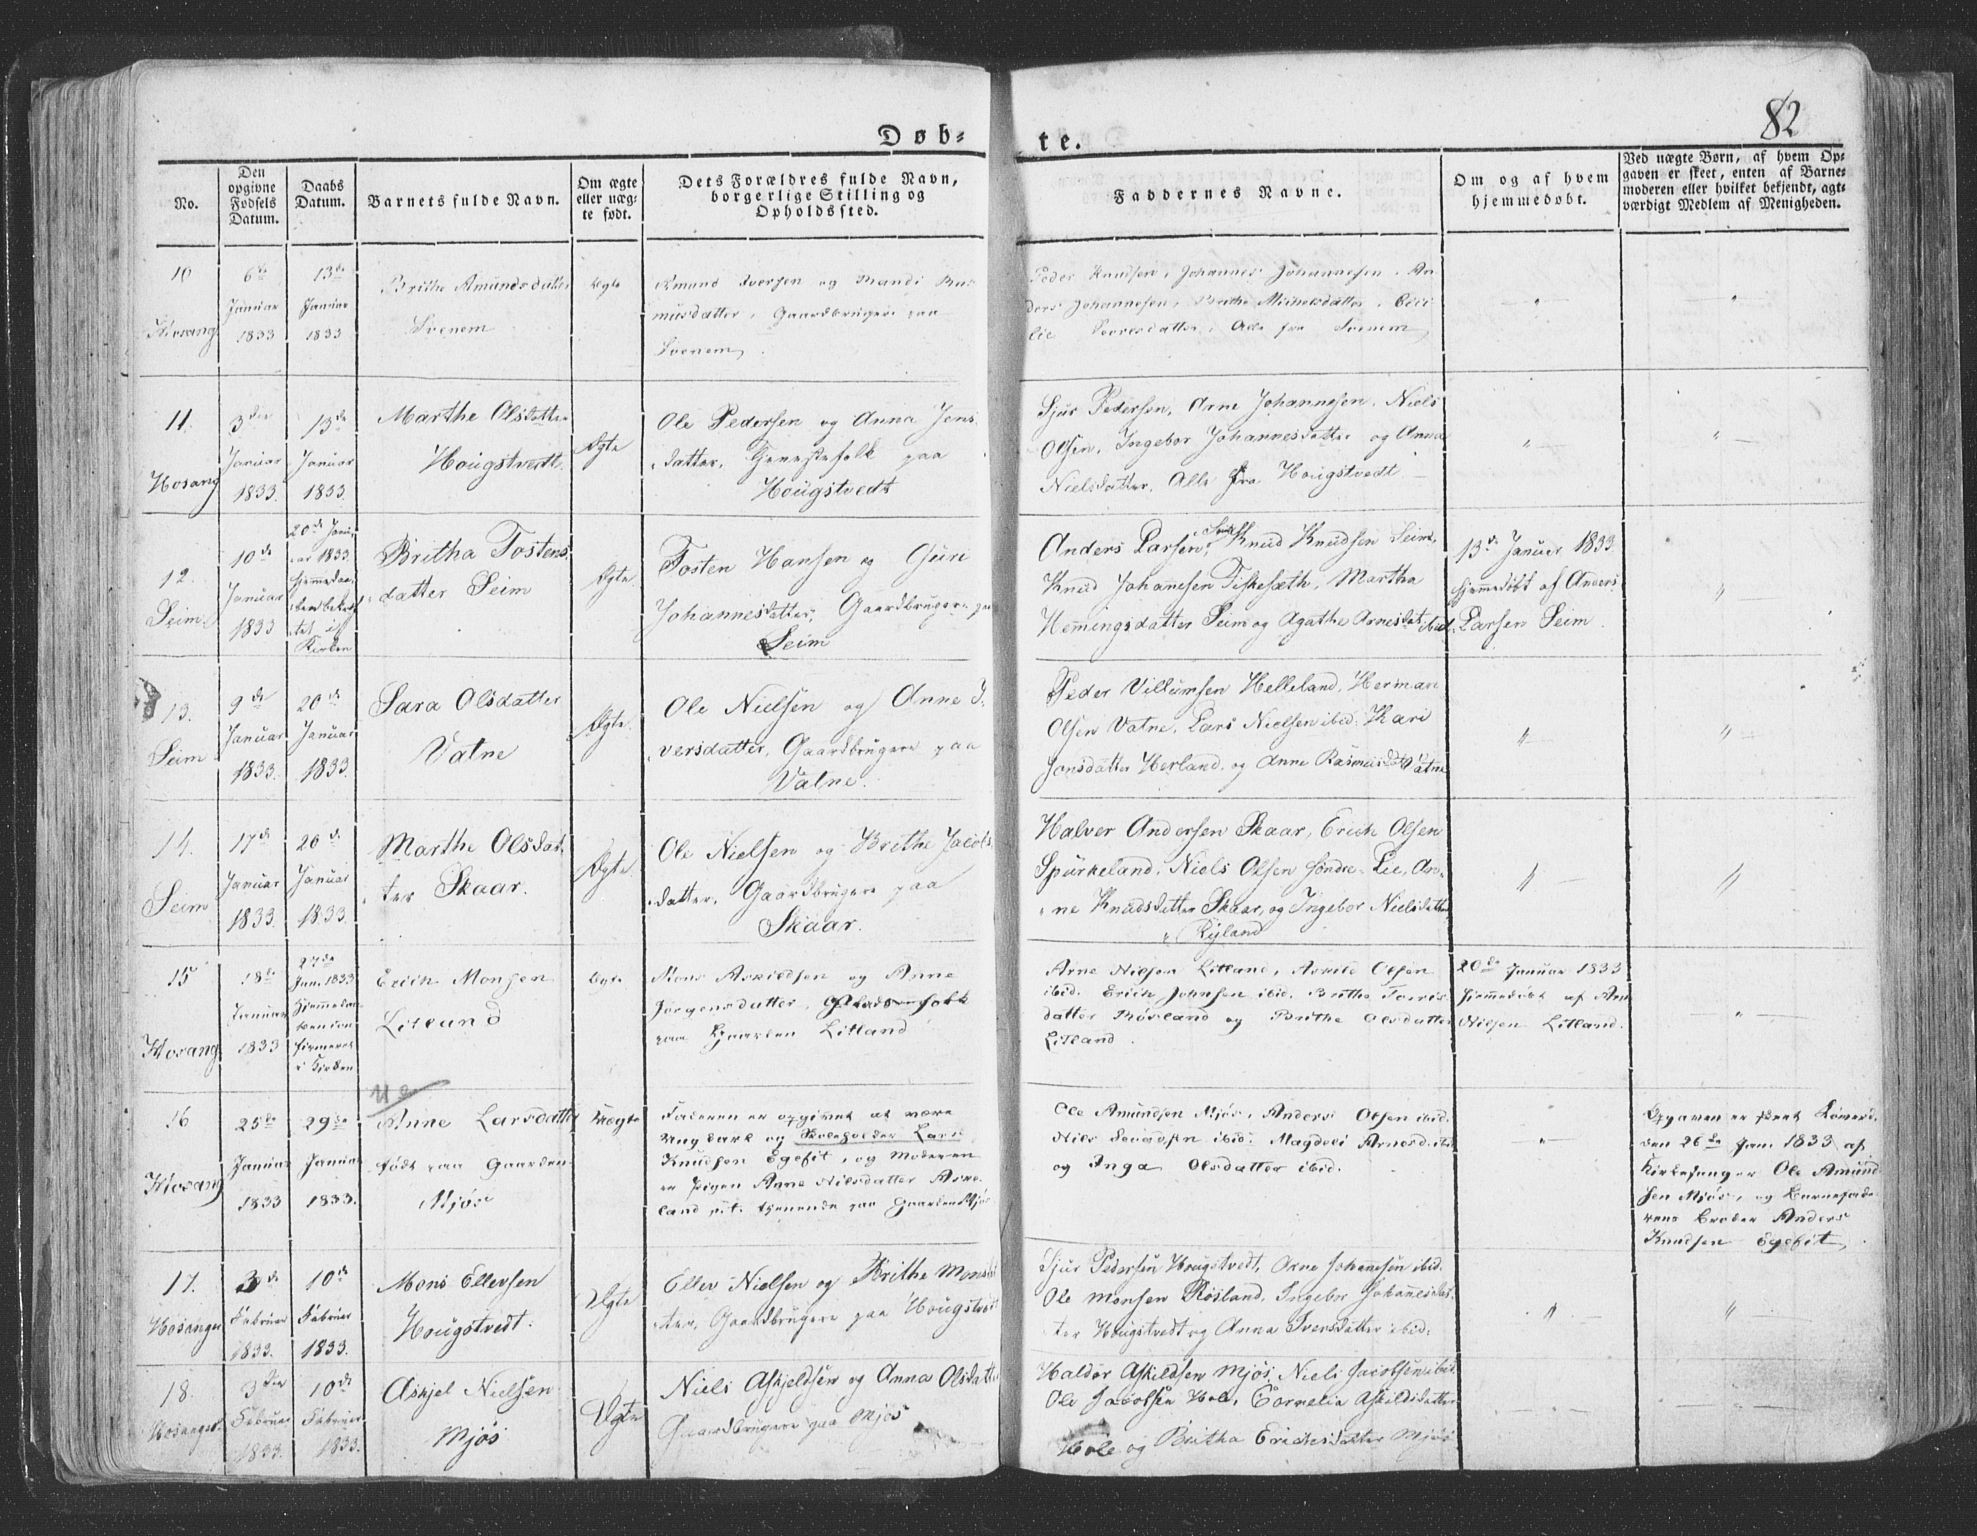 82
Døb-
te.
No.
Den opgivne Fødsels Datum.
Daabs Datum.
Barnets fulde Navn.
Om ægte eller uægte født.
Dets Forældres fulde Navn, borgerlige Stilling og Opholdssted.
Faddernes Navne.
Om og af hvem hjemmedøbt.
Ved uægte Børn, af hvem Opgaven er skeet, enten af Barnemoderen eller hvilket bekjendt, agtværdigt Medlem af Menigheden.
10
Hosang
6te
Januar
1833
13de
Januar
1833
Brithe Amundsdatter
Svenem
Ægte
Amund Iversen og Mandi Ras-
musdatter, Gaardbrugere paa
Svenem
Peder Knudsen, Johannes Johannesen, An-
ders Johannesen, Brithe Michelsdatter, Ceci-
lie Alle fra Svenem
11.
Hosang
3die
Januar
1833.
13de
Januar
1833.
Marthe Olsdatter
Hougstvedt.
Ægte
Ole Pedersen og Anna Jens
datter, paa
Hougstvedt
Sjur Pedersen, Arne Johannesen, Niels
Olsen, Ingebor Johannesdatter og Anna
Nielsdatter, Alle fra Hougstvedt.
12.
Seim
10de
Januar
1833
20de Janu-
ar 1833
Hjemedaa-
ben bekræf
tet i
Kirken
Britha Tostens
datter Seim
Ægte
Tosten Hansen og Guri
Johannesdatter, Gaardbrugere paa
Seim
Anders Larsen, Seim Knud Knudsen Seim,
Knud Johanesen Fiskesæth, Martha
Hemingsdatter Seim og Agathe Arnesdat ibid.
13de Januer 1833
hjemedøbt af Anders
Larsen Seim.
13.
Seim
9de
Januar
1833.
20de
Januar
1833.
Sara Olsdatter
Vatne
Ægte.
Ole Nielsen og Anne I-
versdatter, Gaardbrugere paa
Vatne.
Peder Villumsen Helleland, Herman
Olsen Vatne, Lars Nielsen ibid. Kari
Jonsdatter Herland og Anne Rasmusdat Vatne
14.
Seim
17de
Januar
1833.
20de
Januar
1833.
Marthe Olsdat-
ter Skaar.
Ægte.
Ole Nielsen og Brithe Jacobs
datter, Gaardbrugere paa
Skaar.
Halver Andersen Skaar, Erich Olsen
Spurkeland, Niels Olsen søndre Lie, An-
ne Knudsdatter Skaar, og Ingebor Nielsdatter
Ryland
15
Hosang
18de
Januar
1833
27de
Jan. 1833
Hjemmedaa-
ben con-
firmeret
i Kirken
Erich Monsen
Litland
Ægte
Mons Askildsen og Anne
Jørgensdatter,
paa Gaarden Litland
Arne Nilsen Litland, Askild Olsen
ibid. Erich Johnsen ibid. Brithe
datter Røsland og Brithe Olsdatter
Litland.
20de Januar 1833
hjemmedøbt af Arn
Nilsen Litland.
16
Hosang
25de
Januar
1833
29de
Januar
1833.
Anne Larsdatter
født paa Gaarden
Mjøs
Uægte
Faderen er opgivet at være
Ungkarl og Skoleholder Lars
Knudsen Egefit, og Moderen
er Pigen Anne Nilsdatter Aske-
land p.t. tjenende paa Gaarden Mjøs
Ole Amundsen Mjøs, Anders Olsen ibid.
Nils ibid. Magdeli Arnesd. ibid
og Inga Olsdatter ibid.
Opgaven er skeet
den 26de Jan. 1833 af
Kirkesanger Ole Amund-
sen Mjøs, og Barnefade-
rens Broder Anders
Knudsen Egefit,
17.
Hosanger
3de
Februer
1833.
10de
Februer
1833.
Mons Ellevsen
Hougstvedt.
Ægte
Ellev Nielsen og Brithe Monsdat
ter, Gaardbrugere paa Hougstvedt
Sjur Pedersen Hougstvedt, Arne Johanesen ibid.
Ole Monsen Røsland, Ingebor Johanesdat-
ter Hougstvedt og Anna Iversdatter ibid.
18.
Hosanger
3die
Februer
1833.
10de
Februer
1833.
Askjel Nielsen
Mjøs
Ægte
Niels Askjeldsen og Anna Olsdatter
Gaardbrugere paa Mjøs
Haldor Askildsen Mjøs, Niels Jacobsen ibid
Ole Jacobsen Hole, Cornelia Askildsdatter
Hole og Britha Erichsdatter Mjøs